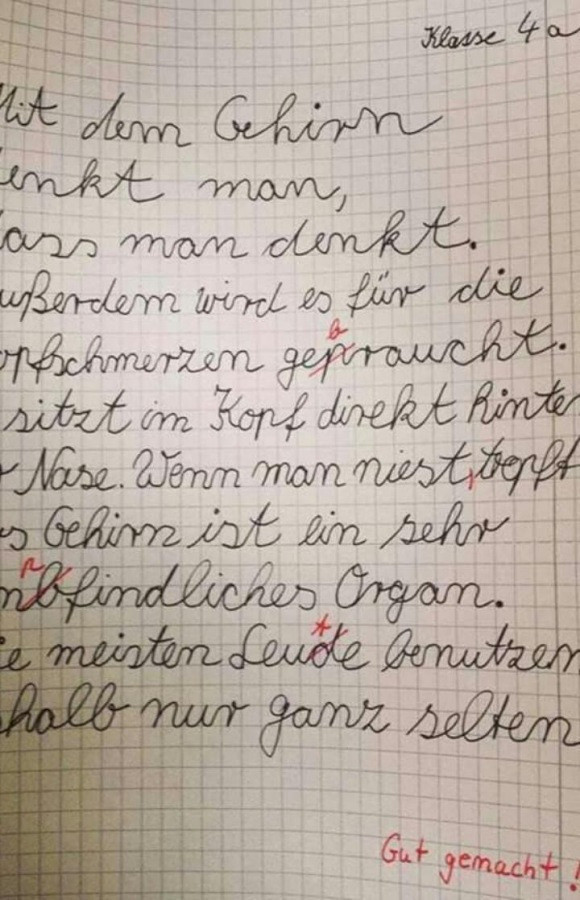 Klasse 4a
Mit dem Gehirn
enkt man,
ass man denkt.
ußerdem wird es für die
b
opfschmerzen gepraucht.
sitzt im Kopf direkt hinter
r Nase. Wenn man niest, tropft
s Gehirn ist ein sehr
p
mbfindliches Organ.
t
ie meisten Leude benutzen
shalb nur ganz selten
Gut gemacht!